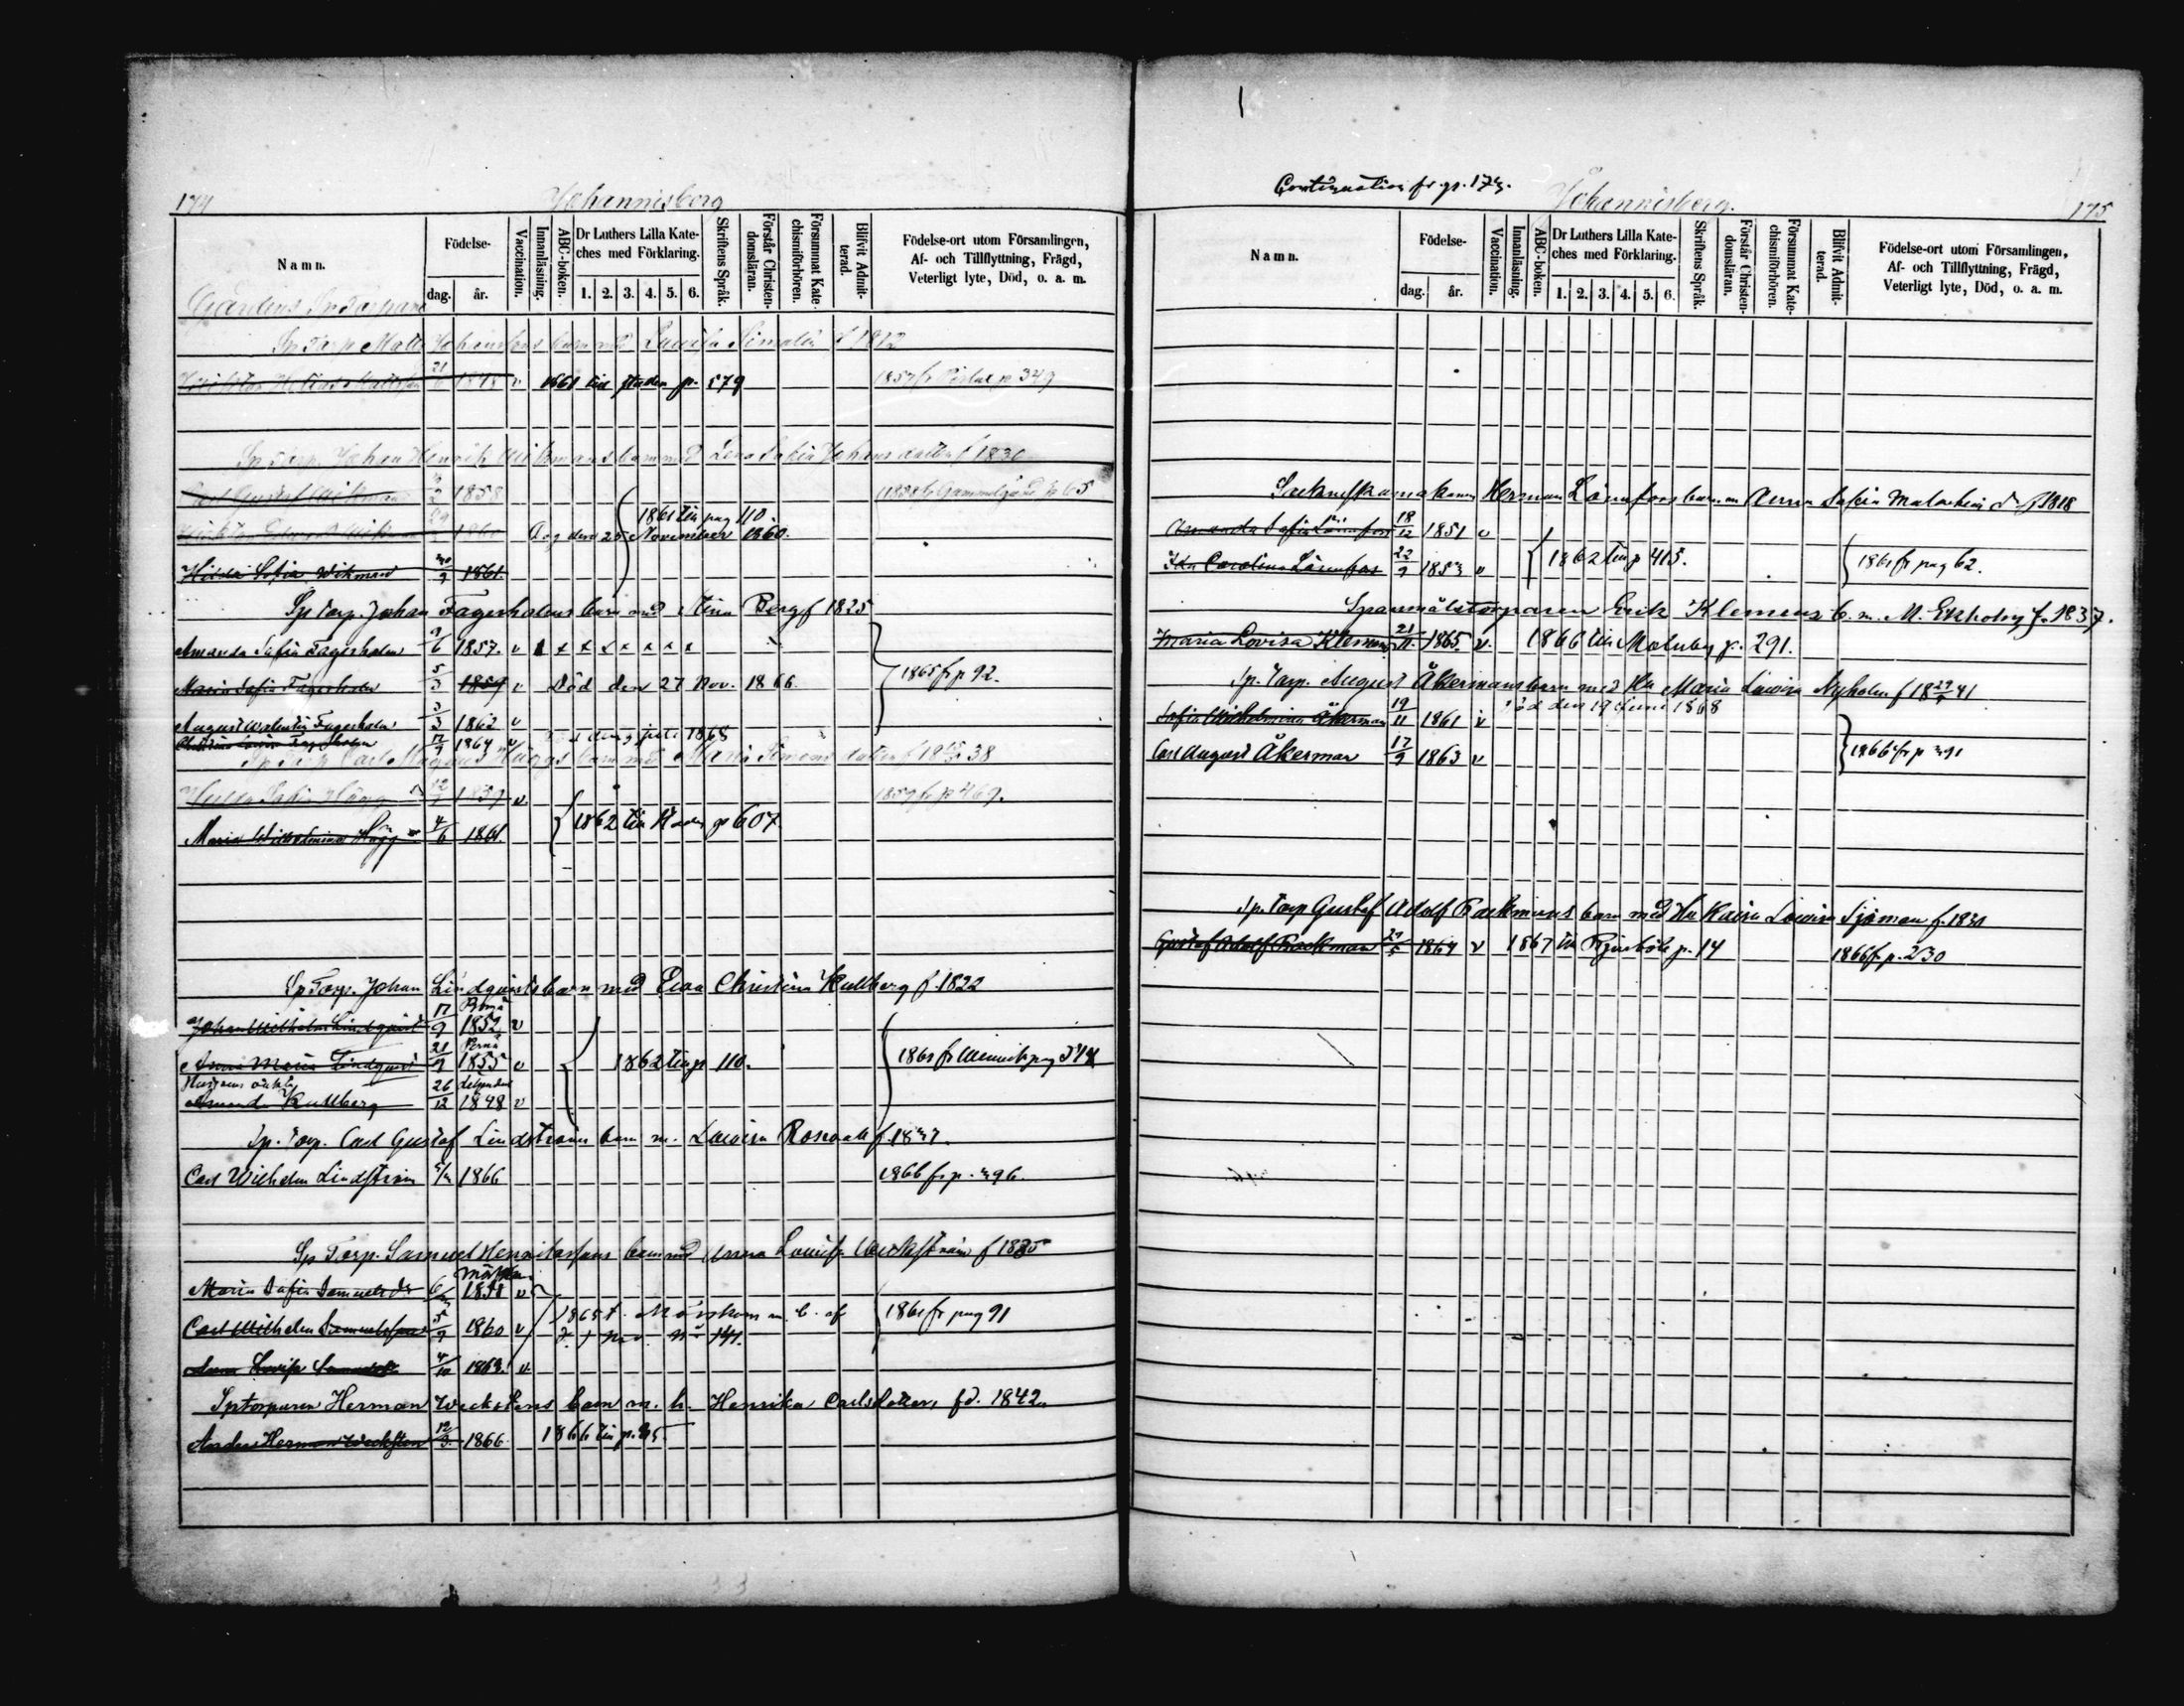 174 Johannisberg
Namn. Födelse- dag. år. Vaccination. Innanläsning. ABC-boken. Dr Luthers Lilla Kateches med Förklaring. 1. 2. 3. 4. 5. 6. Skriftens Språk. Förstår Christendomsläran. Försummat Katechismiförhören. Blifvit Admitterad. Födelse-ort utom Församlingen, Af- och Tillflyttning, Frägd, Veterligt lyte, Död, o. a. m.
Sp Torp Matts Johanssons barn med Lovisa f 1812
21 v 1861 till staden p. 579 1857 fr p 349
Sp Torp. Johan Henrik Wikmans barn med Lena Sofia Johans f 1830
Carl Gustaf Wikman 2 1858 1858 fr Gammelgård p 65
1860 Dog den 25 November 1860. 1861 till pag 110.
Hilda Sofia Wikman 30/9 1861.
Sp Torp. Johan Fagerholms barn med Stina Berg f 1825
Amanda Sofia Fagerholm 6 1857. v x x x x x x x
Maria Sofia Fagerholm 5/3 1859 v Död den 27 Nov. 1866. 1865 fr p 92.
August Walentin Fagerholm 3/3 1862 v
9 1864 v 1868
Sp Torp Carl Magnus Häggs barn med Maria 38
Hulda Sofia Hägg 12 1859 v. 1859 fr p 469.
Maria Wilhelmina Hägg 4/6 1861. 1862 till p 607.
Sp Torp. Johan Lindqvists barn med Eva Christina Kullberg f. 1822
Johan Wilhelm Lindqvist 17/9 Pernå 1852 v
Anna Maria Lindqvist 21/9 Pernå 1855 v 1862 till p 110. 1861 fr pag
Hustruns
Amanda Kullberg 26/12 1848 v
Sp. Torp. Carl Gustaf Lindströms barn m. Lovisa f 1837.
Carl Wilhelm Lindström 1866 1866 fr p. 396.
Sp Torp. Samuel Henrikssons barn med Anna Lovisa f 1835
Maria Sofia Samuelsdr 6 1858 v
Carl Wilhelm Samuelsson 5/9 1860 v 1865 t. Mörskom m. b. af 1861 fr pag 91
Anna Lovisa 4/10 1863. v
Sptorparen Herman Weckstens barn m. h. Henrika Carlsdotter, fd. 1842.
Anders Herman Wecksten 12/3 1866 1866 till p.
Continuation fr. p. 174. Johannisberg. 175
Namn. Födelse- dag. år. Vaccination. Innanläsning. ABC-boken. Dr Luthers Lilla Kateches med Förklaring. 1. 2. 3. 4. 5. 6. Skriftens Språk. Förstår Christendomsläran. Försummat Katechismiförhören. Blifvit Admitterad. Födelse-ort utom Församlingen, Af- och Tillflyttning, Frägd, Veterligt lyte, Död, o. a. m.
Sockneskomakaren Herman Lönnfors barn m Anna Sofia f 1818
Amanda Sofia Lönnfors 18/12 1851 v
Ida Carolina Lönnfors 22/9 1853 v 1862 till p 415. 1861 fr pag 62.
Spanmålstorparen Erik Klemens b. m. M. Ekholm f. 1837.
Maria Lovisa Klemens 21/11. 1865. v. 1866 till p. 291.
Sp. Torp. August Åkermans barn med Hu Maria Lovisa Nyholm f 18 41
Sofia Wilhelmina Åkerman 19/11 1861 v Död den 19 Juni 1868
Carl August Åkerman 17/9 1863 v 1866 fr p 391
Sp. Torp Gustaf Adolf Backmans barn med Hu Kaisa Lovisa Sjöman f. 1831
Gustaf Adolf Backman 27/5 1864 v 1867 till p. 14 1866 fr p. 230